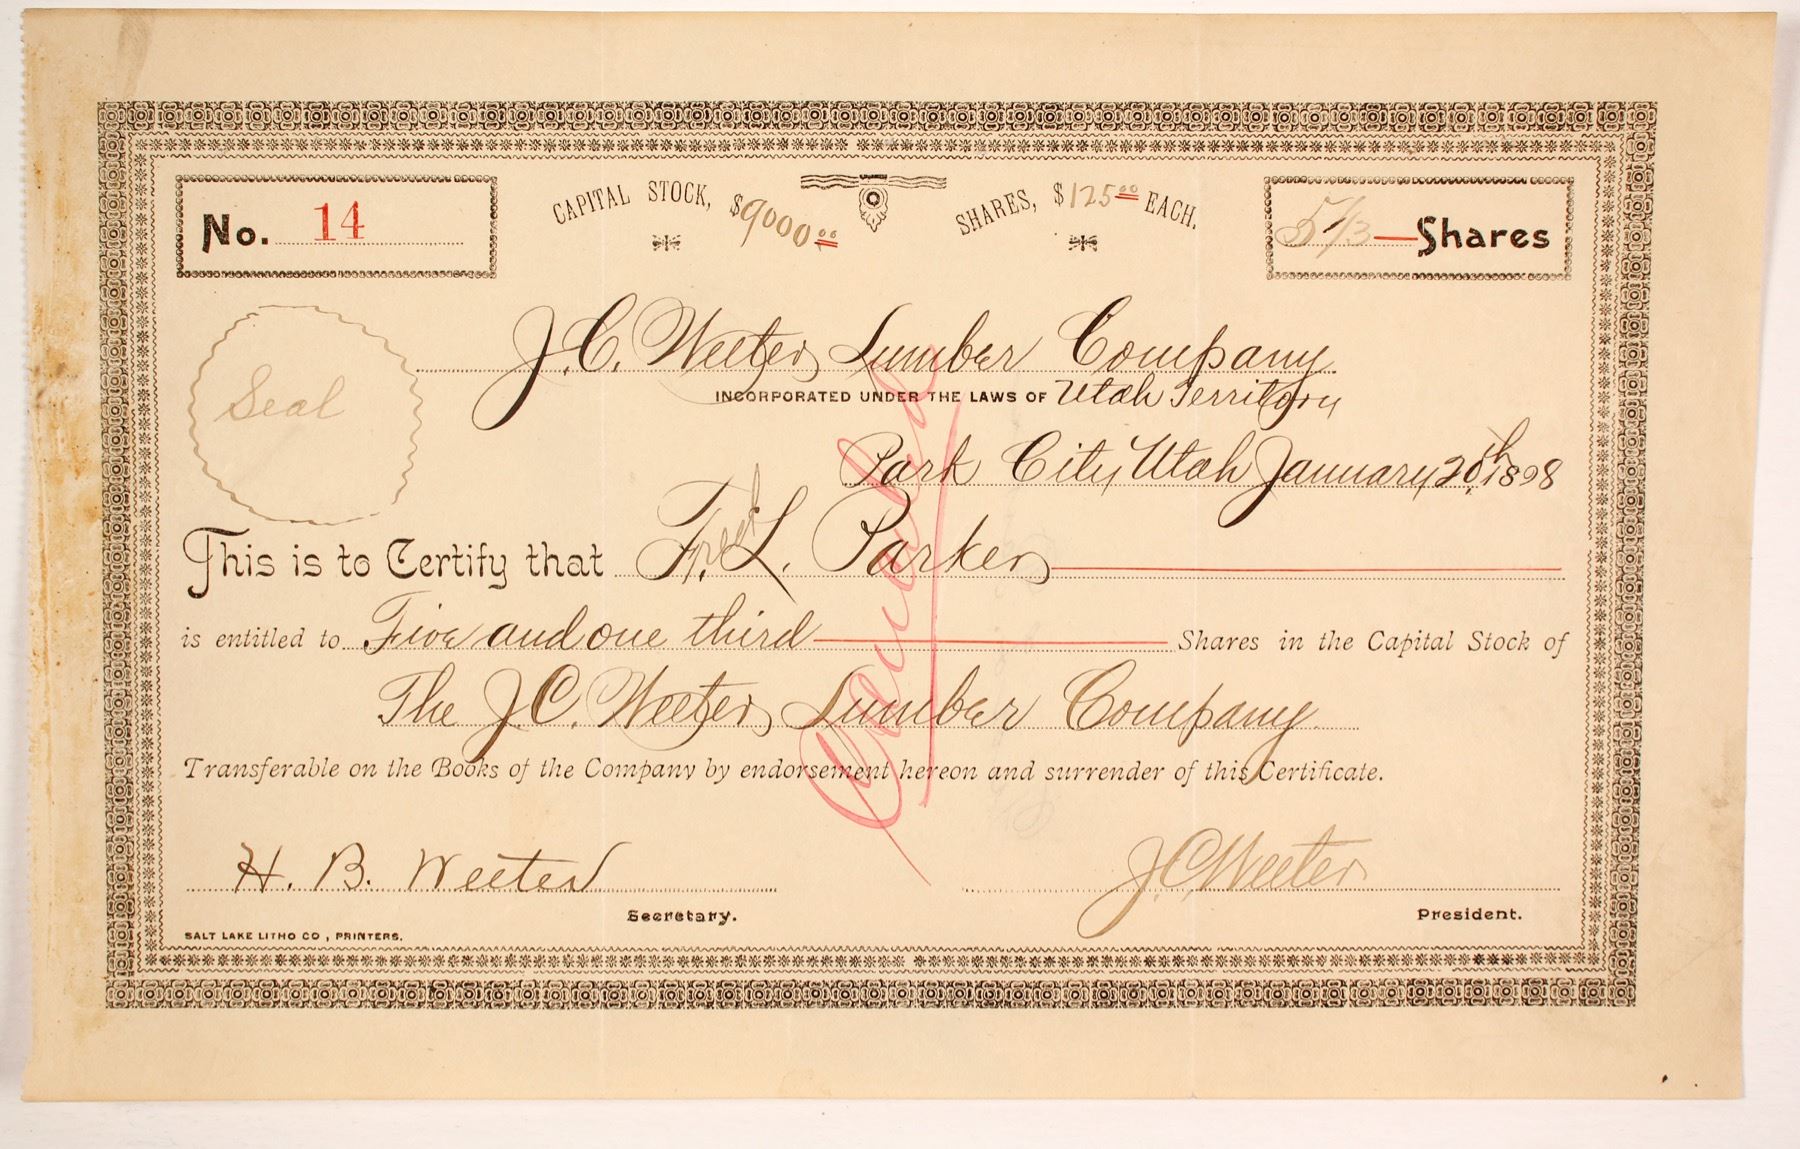 No. 14
CAPITAL STOCK, $9000.00
SHARES, $125.00 EACH.
5 1/3 Shares
Seal
J. C. Weeter Lumber Company
INCORPORATED UNDER THE LAWS OF Utah Territory
Park City Utah January 20th 1898
This is to Certify that Fred L. Parker
is entitled to Five and one third Shares in the Capital Stock of
The J. C. Weeter Lumber Company
Transferable on the Books of the Company by endorsement hereon and surrender of this Certificate.
Cancelled
H. B. Weeter
Secretary.
J. C. Weeter
President.
SALT LAKE LITHO CO., PRINTERS.